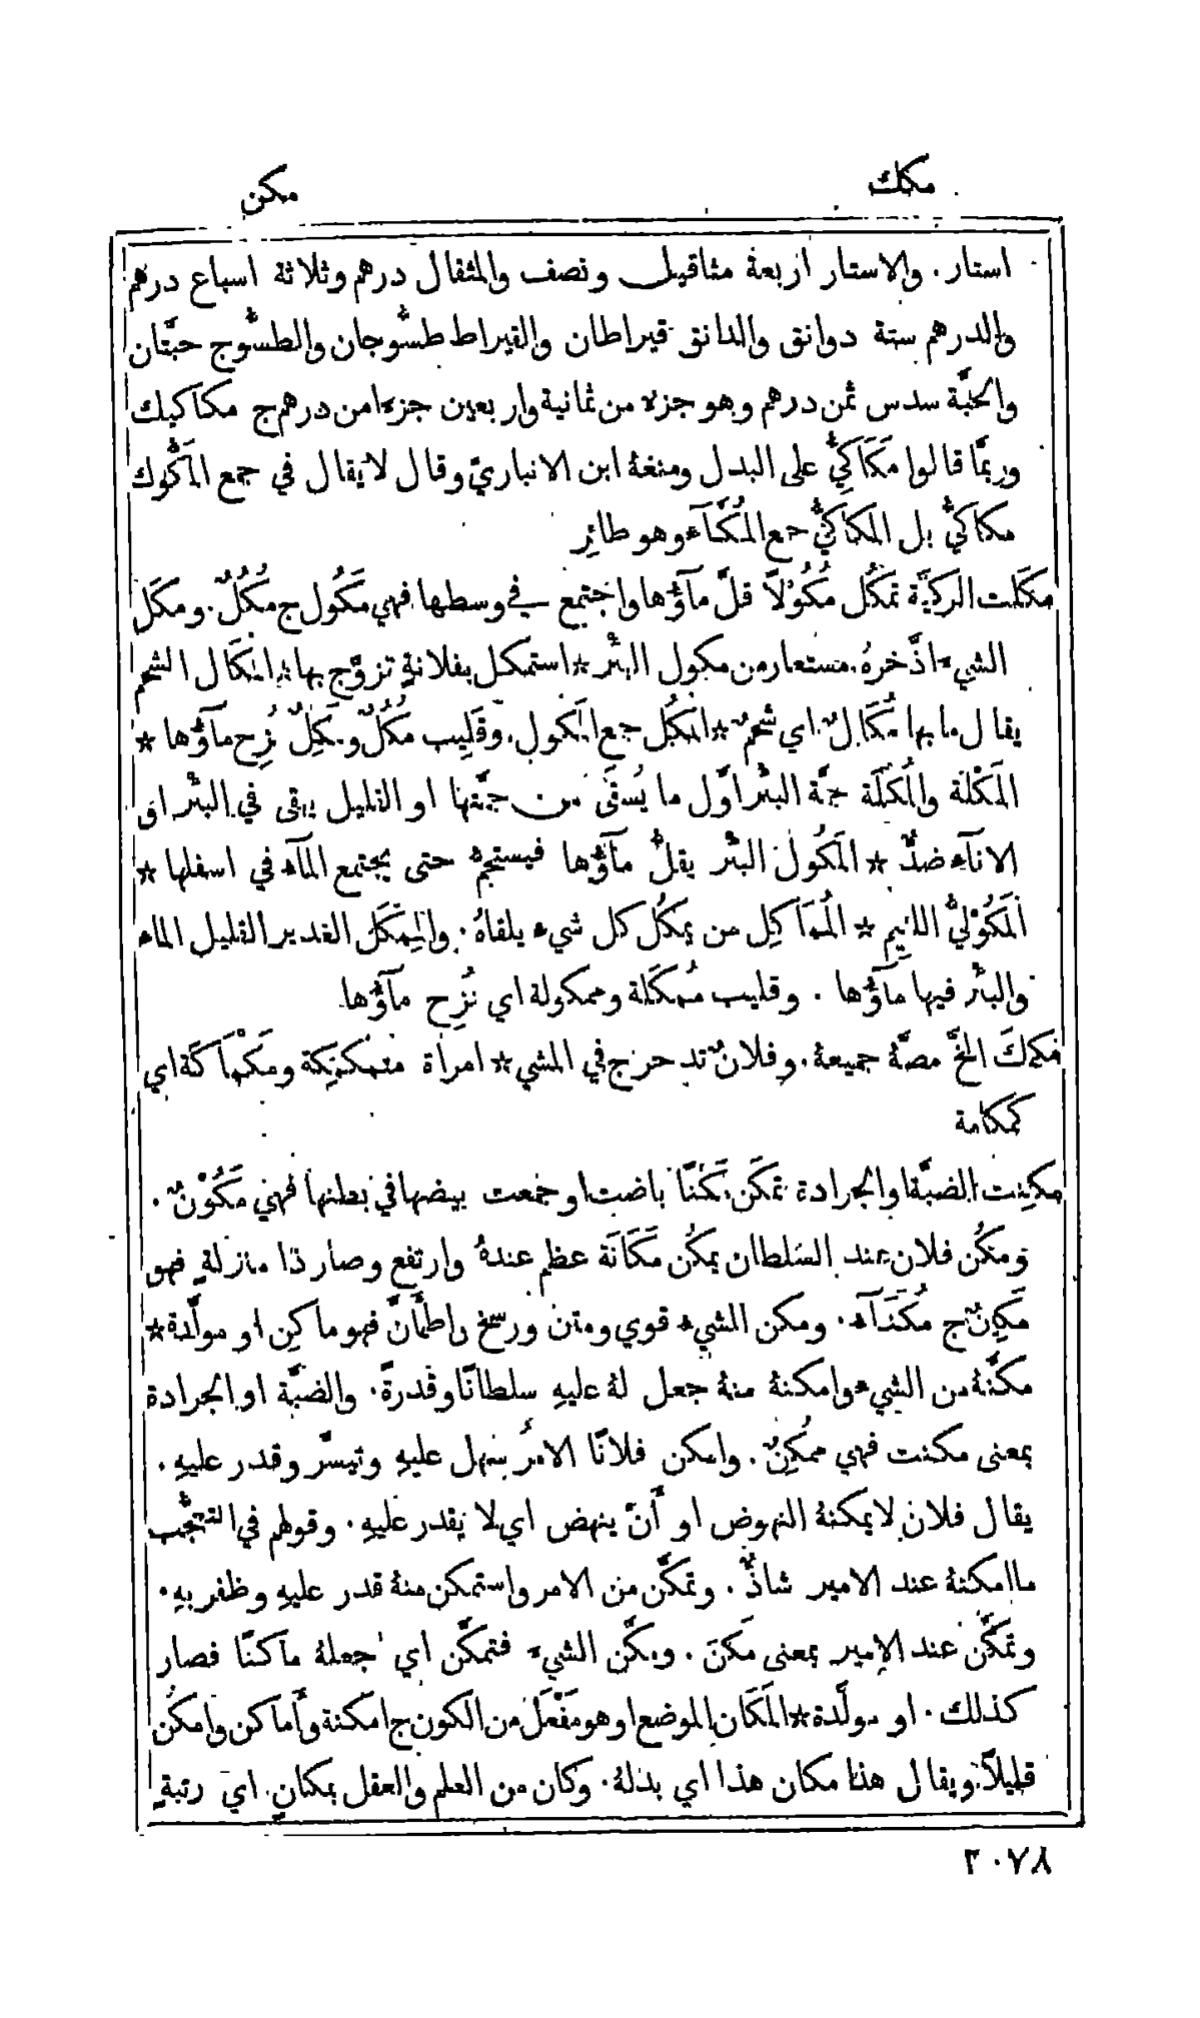 مكك
مكن
استار. والاستار اربعة مثاقيل ونصف والمثقال درهم وثلاثة اسباع درهم
والدرهم ستة دوانق والدانق قيراطان والقيراط طسُّوجان والطسُّوج حبَّتان
والحبَّة سدس ثمن درهم وهو جزء من ثمانية واربعين جزءا من درهم ج مكاكيك
وربمَّا قالوا مَكَاكِيُّ على البدل ومنعهُ ابن الانباريّ وقال لا يقال في جمع المَكُّوك
مكاكيُّ بل المكَاكيُّ جمع المُكَّآء وهو طائِر
مكَلت الركيَّة تمكُل مُكُولًا قلَّ مآؤُها واجتمع في وسطها فهي مَكُول ج مُكُلٌ. ومكَل
الشيءَ اذَّخرهُ. مستعار من مكول البئْر * استمكل بفلانةٍ تزوَّج بها * المَكَال الشحم
يقال ما بها مَكَالٌ اي شحمٌ * المُكُل جمع المَكول. وقَلِيب مُكُلٌ ومَكِلٌ نُزِح مآؤُها *
المَكْلَة والمُكْلَة جمَّة البئْر اوَّل ما يُستقَى من جمَّتها او القليل يبقى في البئْر او
الانآء ضدٌّ * المَكُول البئْر يقلُّ مآؤُها فيستجمُّ حتى يجتمع المآء في اسفلها *
المَكُوْليُّ اللئيم * المُمَاكِل من يمكُل كل شيء يلقاهُ. والمِمكَل الغدير القليل الماء
والبئْر فيها مآؤُها. وقليب مُمكَلة وممكولة اي نُزِح مآؤُها
مَكمَكَ المخَّ مصَّهُ جميعهُ. وفلانٌ تدحرج في المشي * امراة متمكمِكة ومَكْمَاكَة اي
كمكامة
مكِنت الضبَّة او الجرادة تمكَن مَكَنًا باضت او جمعت بيضها في بطنها فهي مَكُوْنٌ.
ومكُن فلان عند السلطان يمكُن مَكَانَة عظم عندهُ وارتفع وصار ذا منزلةٍ فهو
مَكِينٌ ج مُكَنَآء. ومكن الشيءُ قوي ومتن ورسخ واطمَأَنَّ فهو ماكِن او مولَّدة *
مكَّنهُ من الشيء وامكنهُ منهُ جعل لهُ عليهِ سلطانًا وقدرةً. والضبَّة او الجرادة
بمعنى مكنت فهي مُمكِنٌ. وامكن فلانًا الامرُ سهل عليهِ وتيسَّر وقدر عليهِ.
يقال فلان لا يمكنهُ النهوض او أَنْ ينهض اي لا يقدر عليهِ. وقولهم في التعجُّب
ما امكنهُ عند الامير شاذٌّ. وتمكَّن من الامر واستمكن منهُ قدر عليهِ وظفر بهِ.
وتمكَّن عند الامير بمعنى مَكُنَ. ومكَّن الشيءَ فتمكَّن اي جعلهُ ماكنًا فصار
كذلك. او مولَّدة * المَكَان الموضع او هو مَفْعَل من الكون ج امكنة وأَماكن وامكُن
قليلًا. ويقال هذا مكان هذا اي بدلهُ. وكان من العلم والعقل بمكانٍ اي رتبةٍ
٢٠٧٨